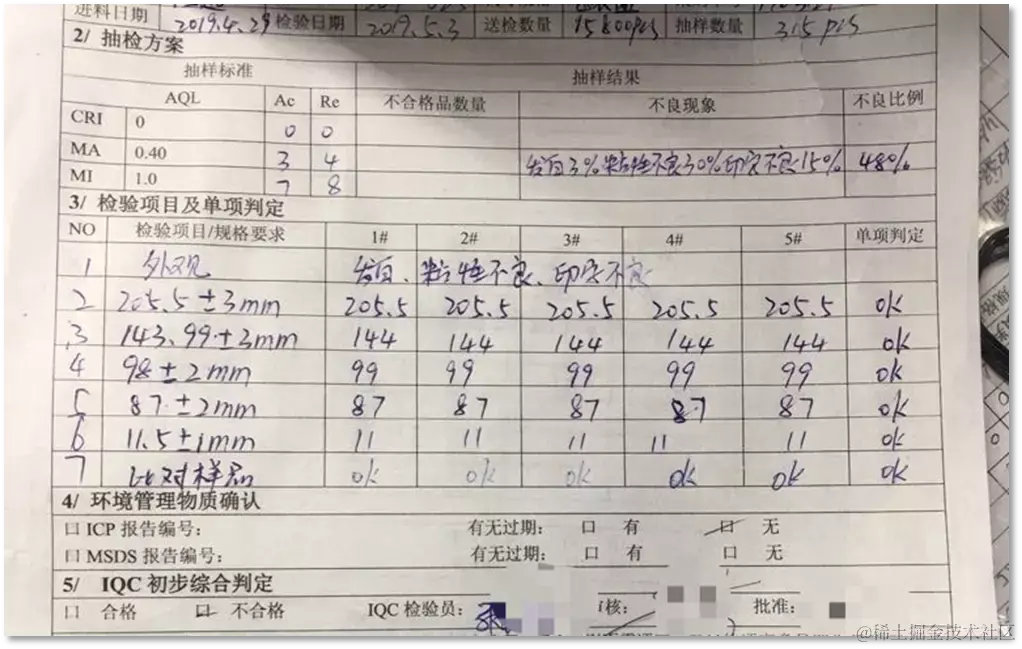 进料日期 2019.4.29 检验日期 2019.5.3 送检数量 15800pcs 抽样数量 315pcs
2/ 抽检方案
抽样标准 抽样结果
AQL Ac Re 不合格品数量 不良现象 不良比例
CRI 0 0 0
MA 0.40 3 4 发白3% 粘性不良30% 印字不良15% 48%
MI 1.0 7 8
3/ 检验项目及单项判定
NO 检验项目/规格要求 1# 2# 3# 4# 5# 单项判定
1 外观 发白、粘性不良、印字不良
2 205.5±3mm 205.5 205.5 205.5 205.5 205.5 ok
3 143.99±3mm 144 144 144 144 144 ok
4 98±2mm 99 99 99 99 99 ok
5 87±2mm 87 87 87 87 87 ok
6 11.5±1mm 11 11 11 11 11 ok
7 比对样品 ok ok ok ok ok ok
4/ 环境管理物质确认
口 ICP 报告编号: 有无过期: 口 有 口 无
口 MSDS 报告编号: 有无过期: 口 有 口 无
5/ IQC 初步综合判定
口 合格 口 不合格 IQC 检验员: 核: 批准:
@稀土掘金技术社区